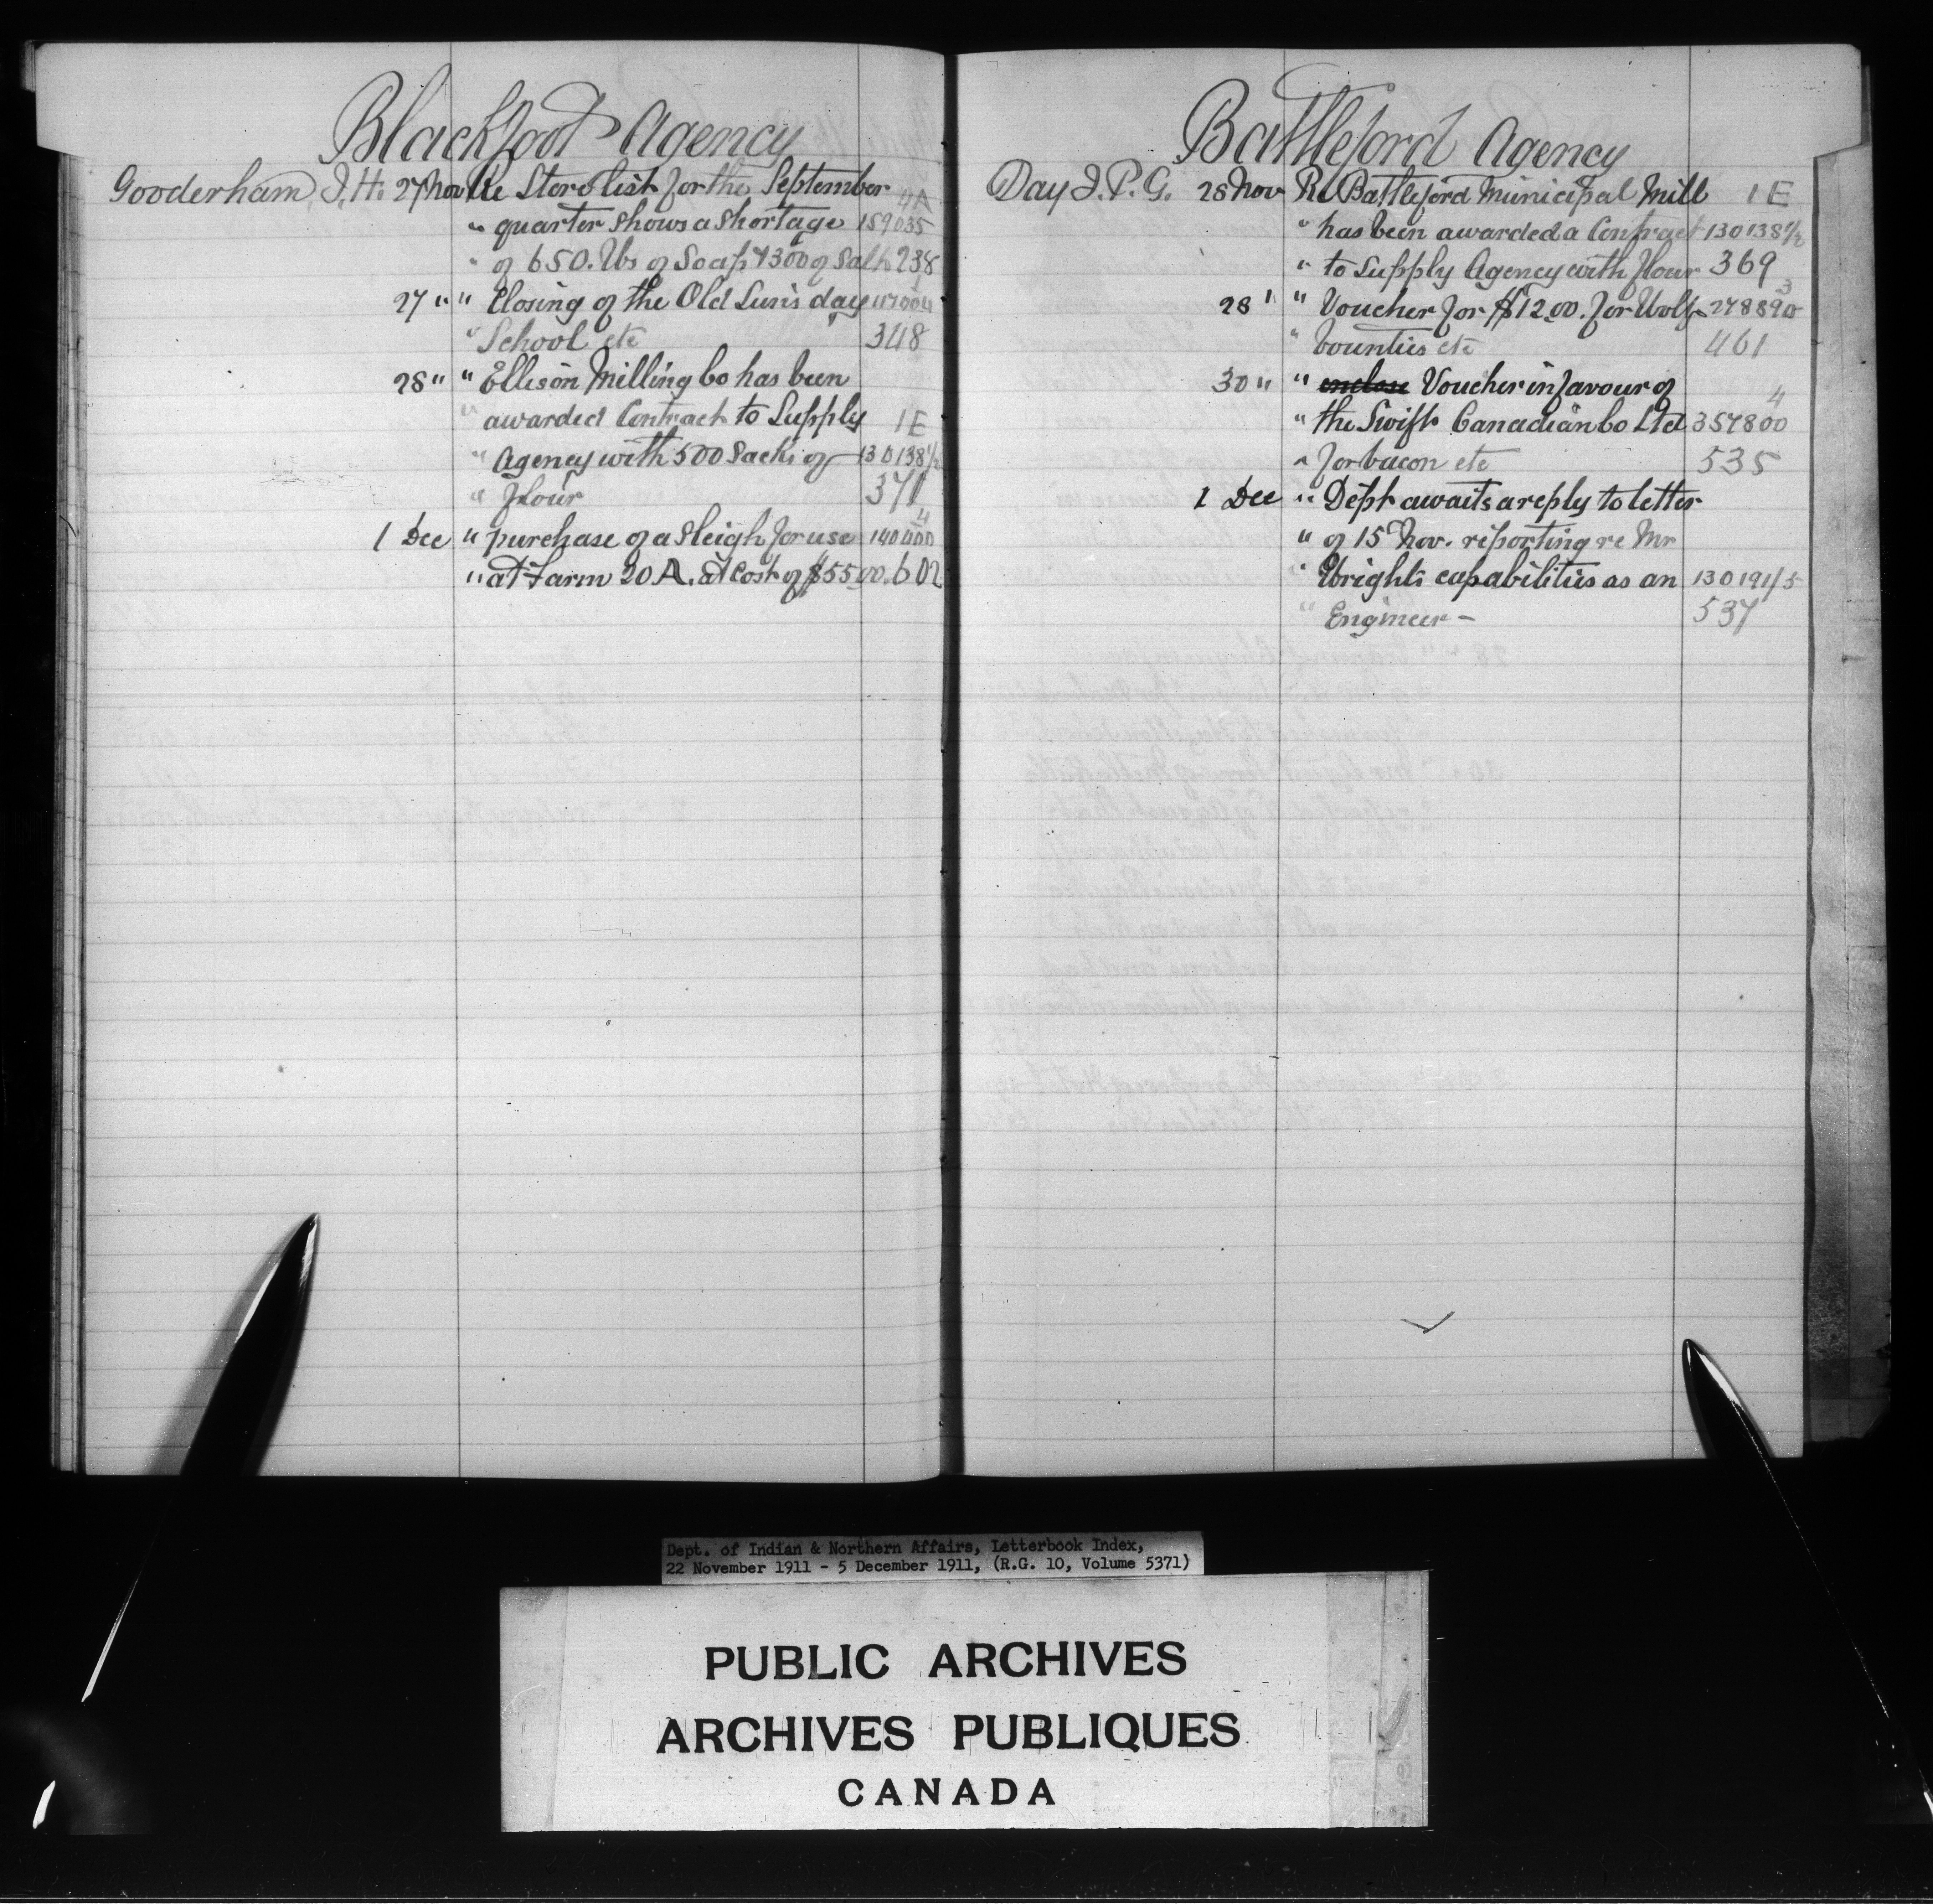 Blackfoot Agency
Gooderham, J. H. 27 Nov Re Store list for the September 4A
" quarter shows a shortage 159035
" of 650. lbs of Soap & 300 of Salt 238
27 " " Closing of the Old Sun's day
" School etc 348
28 " " Ellison Milling Co has been
" awarded Contract to Supply 1E
" Agency with 500 Sacks of 130138 1/2
" flour 371
4
1 Dec " purchase of a sleigh for use 140400
" at Farm 20 A. at cost of $55.00. 602
Battleford Agency
Day J. P. G. 28 Nov Re Battleford Municipal Mill 1E
" has been awarded a Contract 130138 1/2
" to supply Agency with flour 369
3
28 " " Voucher for $12.00. for Wolf 278890
" bounties etc 461
30 " " enclose Voucher in favour of 4
" the Swift Canadian Co Ltd 357800
" for bacon etc 535
1 Dec " Dept awaits a reply to letter
" of 15 Nov. reporting re Mr
" Wright's capabilities as an 130191/5
" Engineer - 537
Dept. of Indian & Northern Affairs, Letterbook Index,
22 November 1911 - 5 December 1911, (R.G. 10, Volume 5371)
PUBLIC ARCHIVES
ARCHIVES PUBLIQUES
CANADA